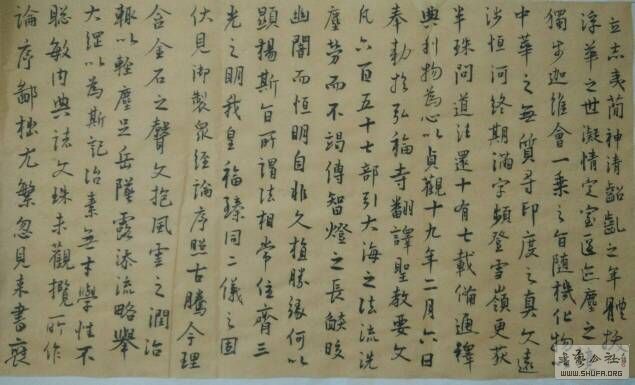 立志夷簡神清齠齔之年體拔
浮華之世凝情定室匿迹塵之
獨步迦維會一乘之旨隨機化物
中華之無質尋印度之真文遠
涉恒河終期滿字頻登雪嶺更荻
半珠問道法還十有七載備通釋
典利物為心以貞觀十九年二月六日
奉勅於弘福寺翻譯聖教要文
凡六百五十七部引大海之法流洗
塵勞而不竭傳智燈之長燄皎
幽闇而恒明自非久植勝緣何以
顯揚斯旨所謂法相常住齊三
光之明我皇福臻同二儀之固
伏見御製眾經論序照古騰今理
含金石之聲文抱風雲之潤治
輒以輕塵足岳墜露添流略舉
大綱以為斯記治素無才學性不
聰敏內典諸文珠未觀攬所作
論序鄙拙尤繁忽見来書褒
WWW.SHUFA.ORG